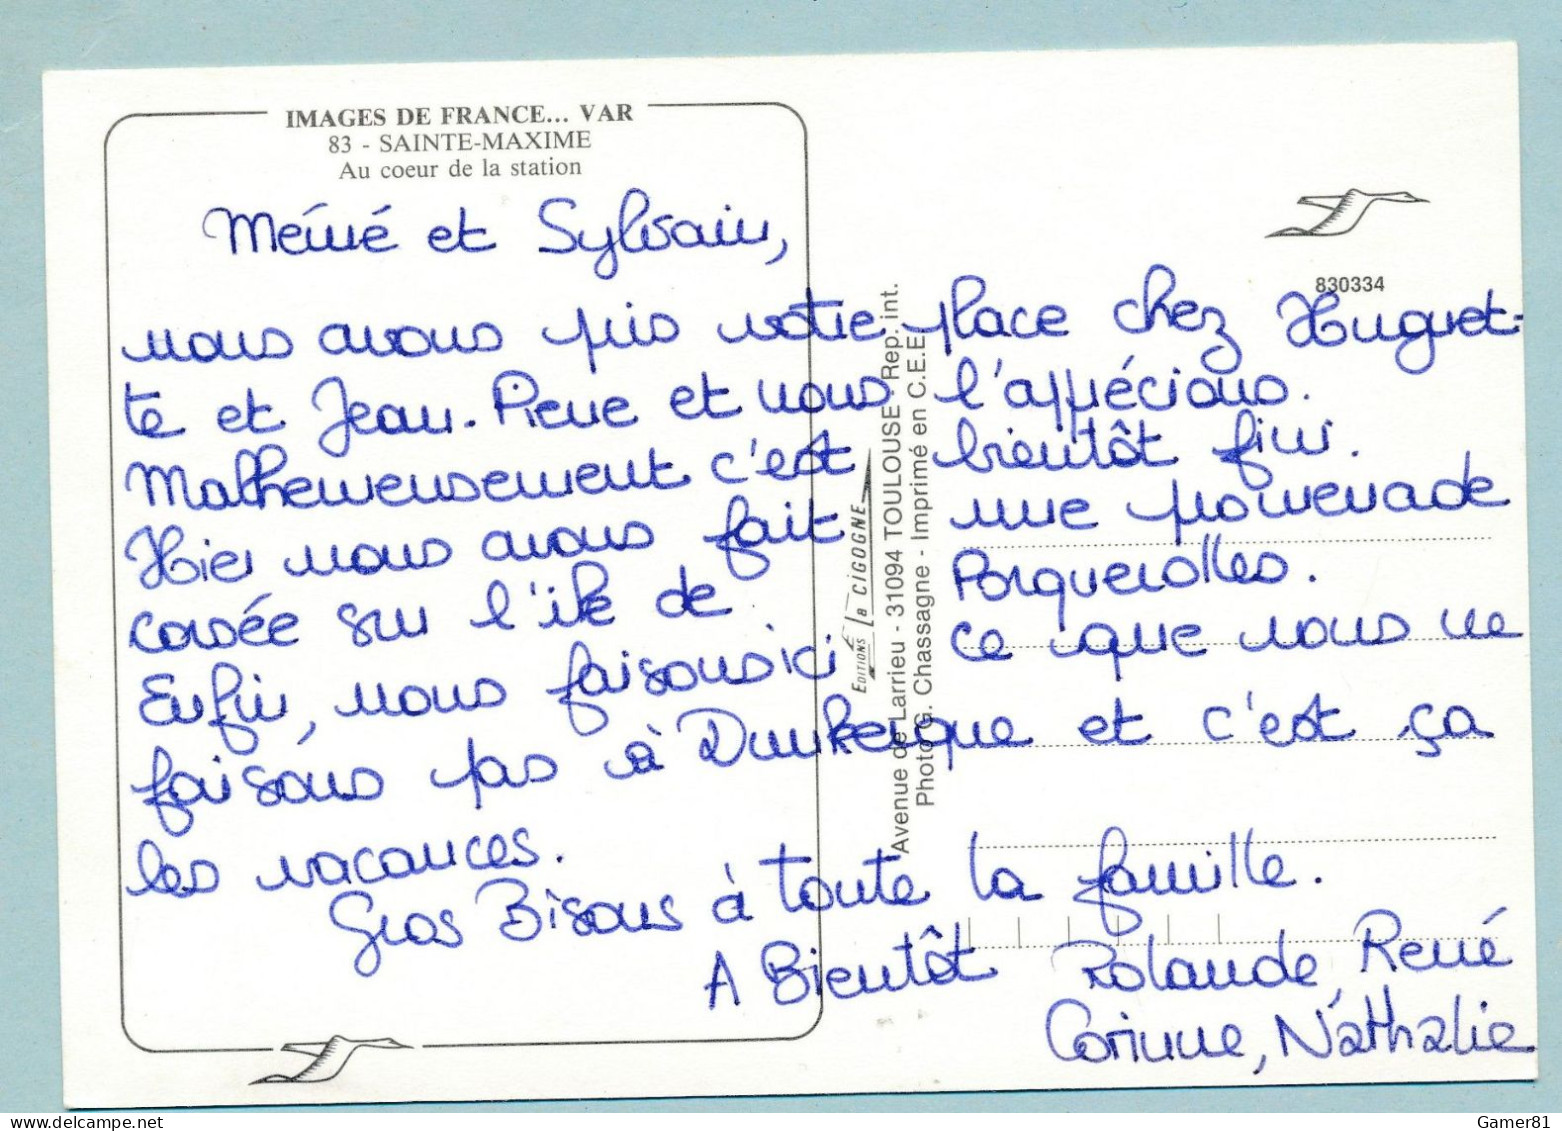 IMAGES DE FRANCE... VAR
83 - SAINTE-MAXIME
Au coeur de la station
Mémé et Sylvain,
830334
nous avons pris votre place chez Huguet-
te et Jean-Pierre et nous l'apprécions.
Malheureusement c'est bientôt fini.
Hier nous avons fait une promenade
corsée sur l'île de Porquerolles.
Enfin, nous faisons ici ce que nous ne
faisons pas à Dunkerque et c'est ça
les vacances.
Gros Bisous à toute la famille.
A Bientôt Rolande, René
Corinne, Nathalie
EDITIONS La CIGOGNE
Avenue de Larrieu - 31094 TOULOUSE Rep. int.
Photo G. Chassagne - Imprimé en C.E.E.
Gamer81